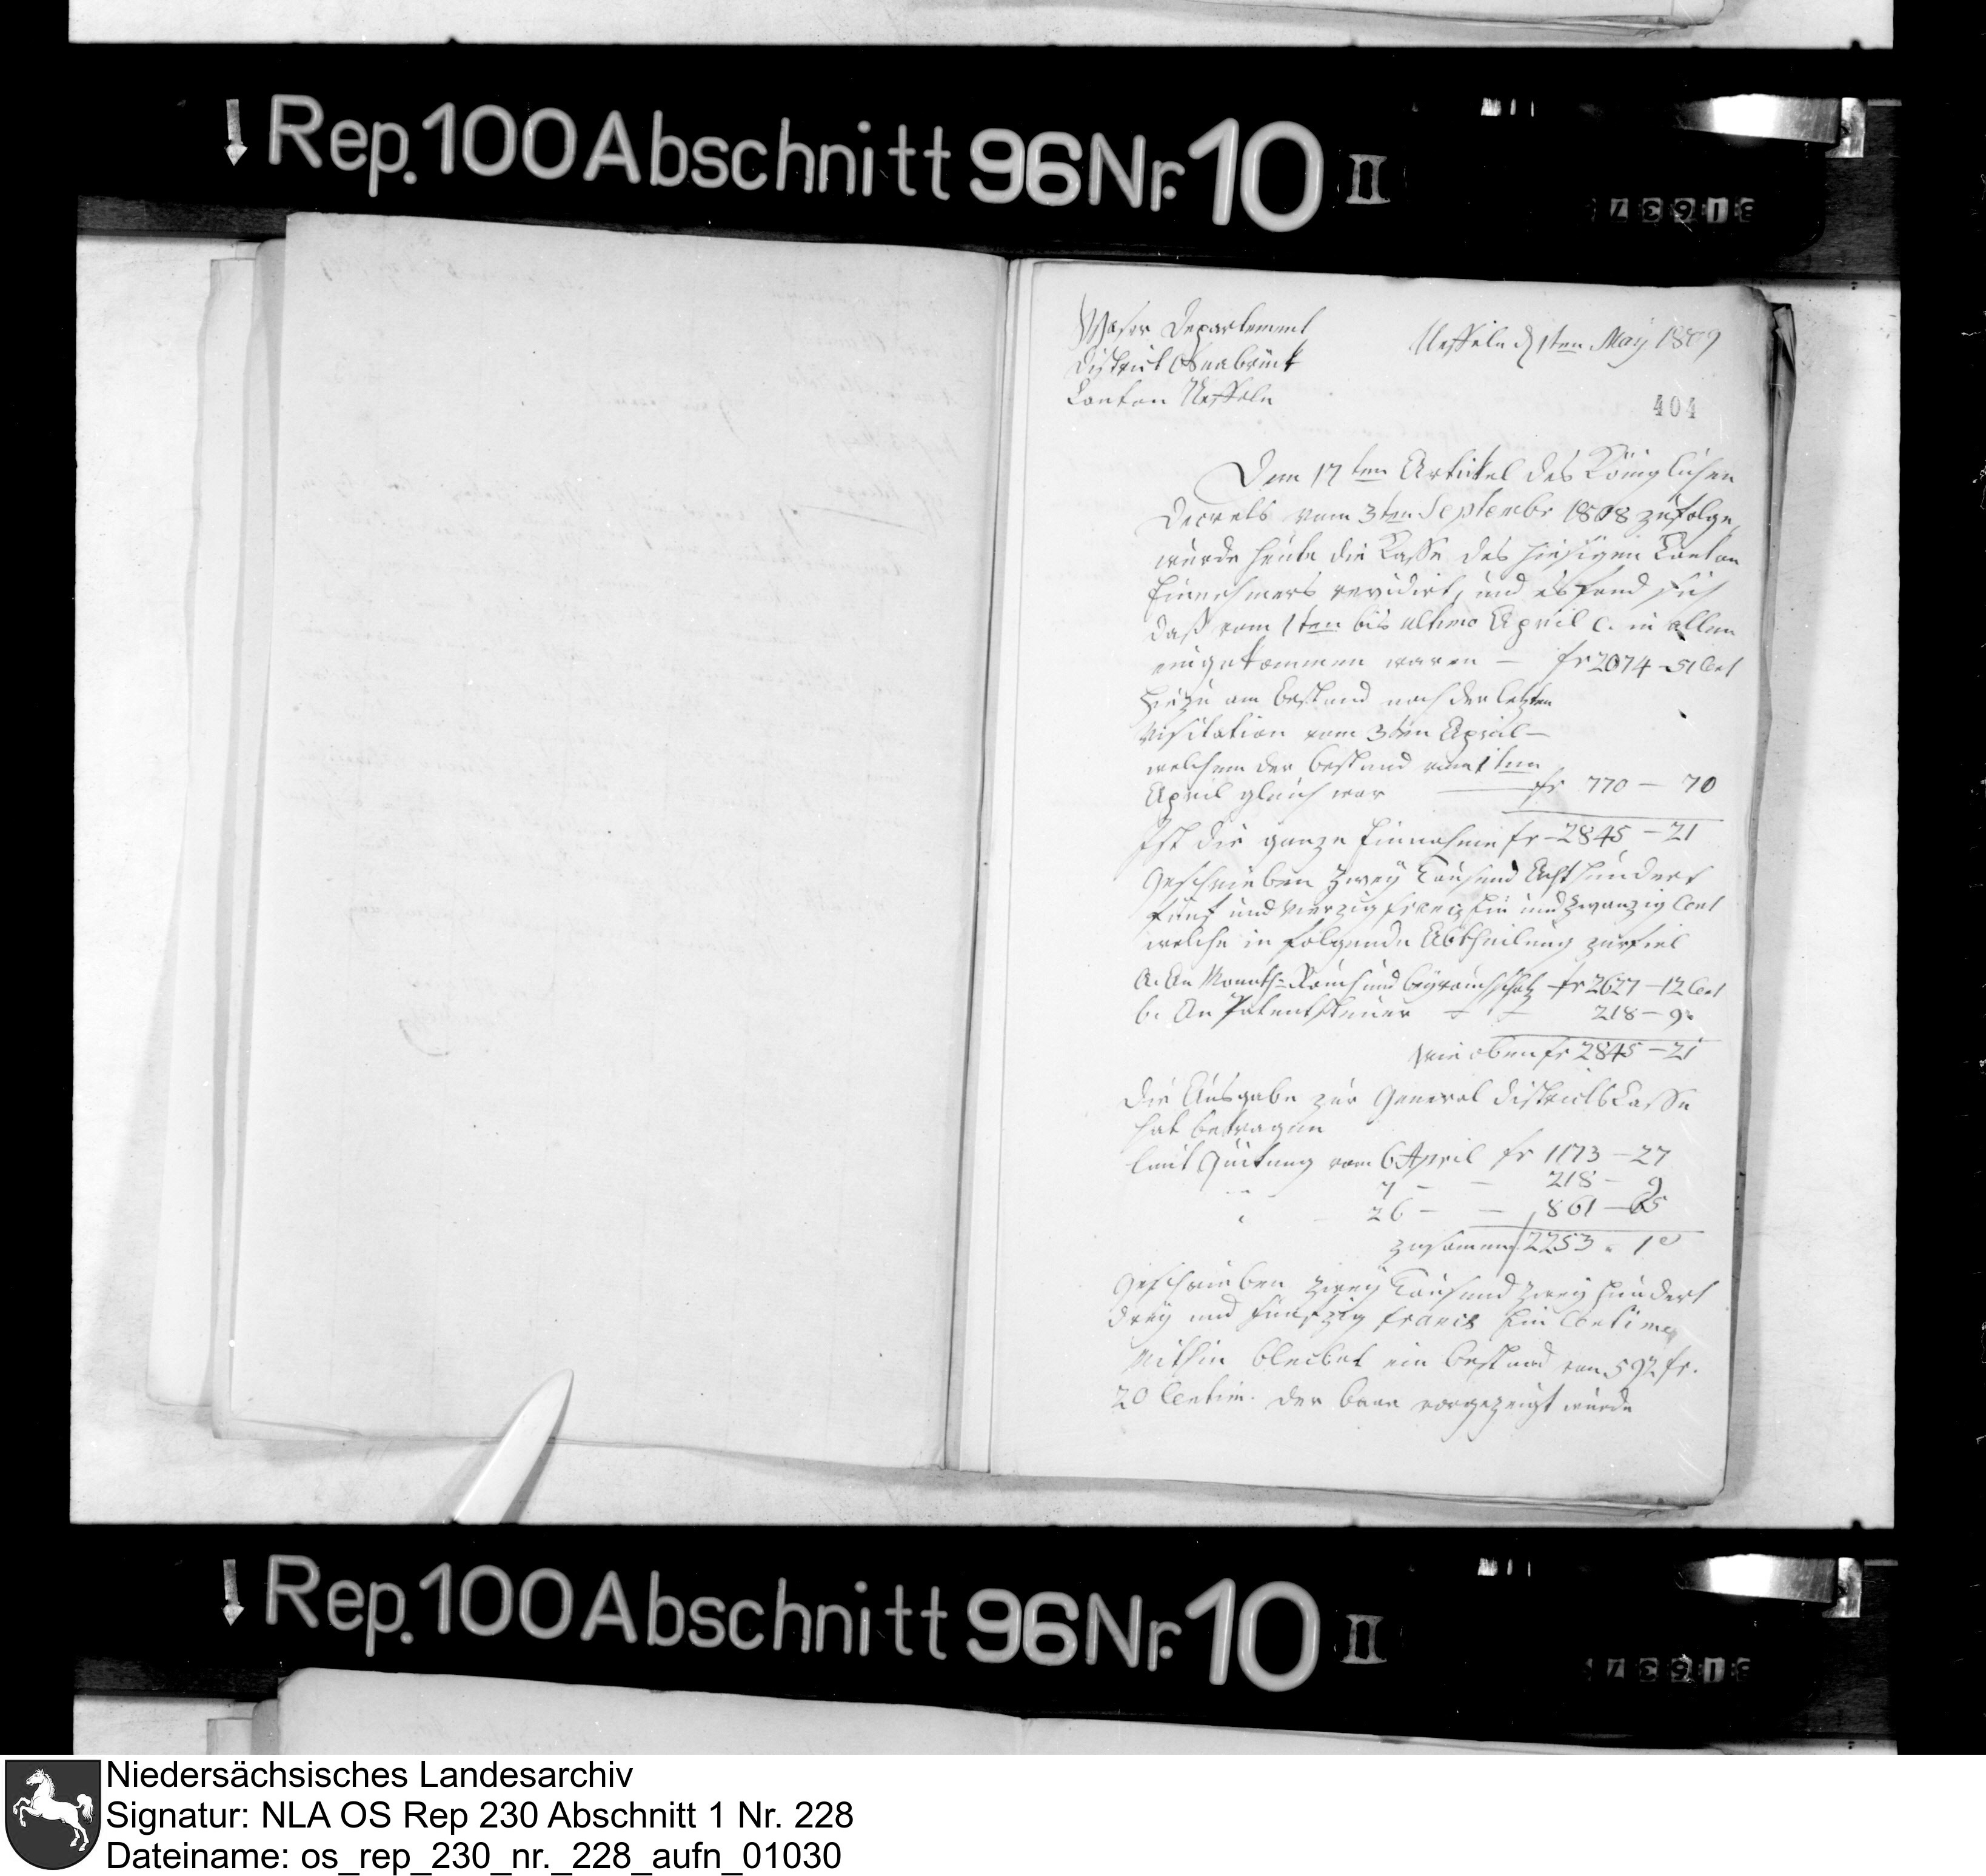 Rep. 100 Abschnitt 96 Nr. 10 II
Weser Departement
District Osnabrück
Canton Uffeln
Uffeln d 1ten May 1809
404
Dem 17ten Artickel des Königlichen
Decrets vom 3ten Septembr 1808 zufolge,
wurde heute die Casse des hiesigen Canton
Einnehmers revidirt, und es fand sich
daß vom 1ten bis ultimo April c. in allem
eingekommen waren — fr 2074 - 51 Cet
Hiezu am Bestand nach der letzten
Visitation vom 3ten April —
welchem der Bestand vom 1ten
April gleich war — fr 770 — 70
Ist die ganze Einnahme fr - 2845 - 21
Geschrieben Zwey Tausend Acht Hundert
fünf und vierzig francs Ein und zwanzig Cent
welche in folgende Abtheilung zerfiel
a. An Monath- Rauch und Beyrauchschatz fr 2627 - 12 Cet
b. An Patentsteuer 218 — 9.
wie oben fr 2845 - 21
Die Ausgabe zur General DistrictsCasse
hat betragen
laut Quitung vom 6 April fr 1173 - 27
7 — — 218 - 9
26 — — 861 - 65
zusamen 2253 - 1 C
Geschrieben Zwey Tausend Zwey Hundert
drey und funfzig francs Ein Centime
Mithin bleibet ein Bestand von 592 fr.
20 Centim. der baar vorgezeigt wurde
Rep. 100 Abschnitt 96 Nr. 10 II
Niedersächsisches Landesarchiv
Signatur: NLA OS Rep 230 Abschnitt 1 Nr. 228
Dateiname: os_rep_230_nr._228_aufn_01030